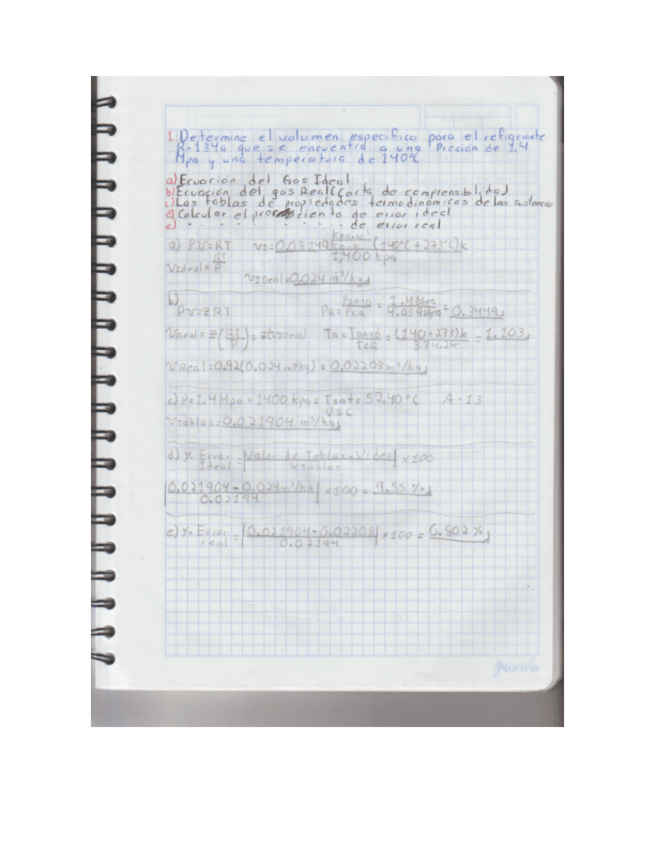 1. Determine el volumen especifico para el refigerante
R-134a que se encuentra a una Presión de 1.4
Mpa y una temperatura de 140°C
a) Ecuación del Gas Ideal
b) Ecuación del gas Real (Carta de comprensibilidad)
c) Las tablas de propiedades termodinámicas de las sustancias
d) Calcular el ciento de error ideal
e) " " " " de error real
a) PV=RT
(140°C + 273°C)k
1,400 kpa
VIdeal = RT/P
VIdeal = 0.024 m³/kg
b)
PV=ZRT
= 0.3449
Vreal = Z(RT/P) = Z(Videal)
= (140+273)k = 1.103
374.2k
VReal = 0.92(0.024 m³/kg) = 0.02208 m³/kg
c) P=1.4 Mpa = 1400 kpa = Tsat = 52.40°C A-13
VSC
Vtablas = 0.021904 m³/kg
d) % Error Ideal = |Valor de Tablas - Videal / Vtablas| x100
|0.021904 - 0.024 m³/kg / 0.02194| x100 = 9.55 %
e) % Error real = |0.021904 - 0.02208 / 0.02194| x100 = 0.802 %
Norma